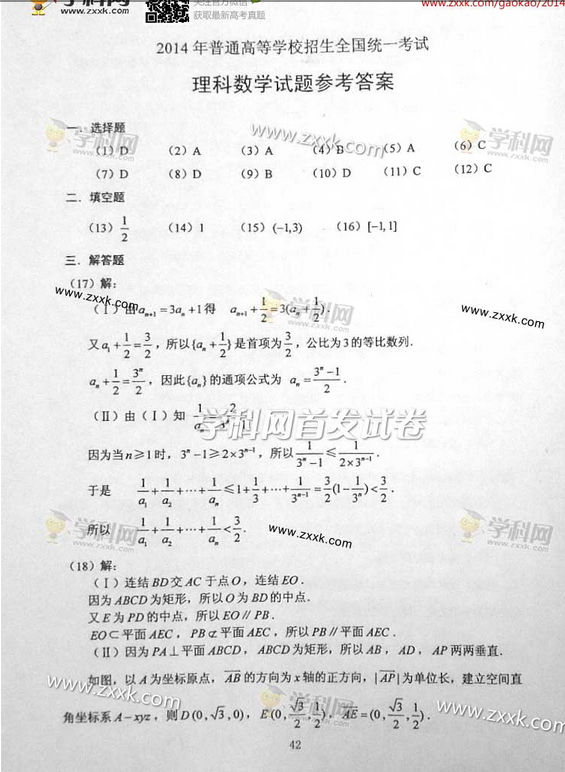 关注官方微信
获取最新高考真题
www.zxxk.com/gaokao/2014
2014 年普通高等学校招生全国统一考试
理科数学试题参考答案
一．选择题
（1）D （2）A （3）A （4）B （5）A （6）C
（7）D （8）D （9）B （10）D （11）C （12）C
二．填空题
（13）1/2 （14）1 （15）(−1,3) （16）[−1,1]
三．解答题
（17）解：
（Ⅰ）由 aₙ₊₁ = 3aₙ + 1 得 aₙ₊₁ + 1/2 = 3(aₙ + 1/2)．
又 a₁ + 1/2 = 3/2，所以{aₙ + 1/2}是首项为 3/2，公比为 3 的等比数列．
aₙ + 1/2 = 3ⁿ/2，因此{aₙ}的通项公式为 aₙ = (3ⁿ−1)/2．
（Ⅱ）由（Ⅰ）知 1/aₙ = 2/(3ⁿ−1)
因为当 n ≥ 1 时，3ⁿ − 1 ≥ 2×3ⁿ⁻¹，所以 1/(3ⁿ−1) ≤ 1/(2×3ⁿ⁻¹)．
于是 1/a₁ + 1/a₂ + ⋯ + 1/aₙ ≤ 1 + 1/3 + ⋯ + 1/3ⁿ⁻¹ = 3/2(1 − 1/3ⁿ) < 3/2．
所以 1/a₁ + 1/a₂ + ⋯ + 1/aₙ < 3/2．
（18）解：
（Ⅰ）连结 BD 交 AC 于点 O，连结 EO．
因为 ABCD 为矩形，所以 O 为 BD 的中点．
又 E 为 PD 的中点，所以 EO // PB．
EO ⊂ 平面 AEC，PB ⊄ 平面 AEC，所以 PB // 平面 AEC．
（Ⅱ）因为 PA ⊥ 平面 ABCD，ABCD 为矩形，所以 AB，AD，AP 两两垂直．
如图，以 A 为坐标原点，AB 的方向为 x 轴的正方向，|AP| 为单位长，建立空间直
角坐标系 A − xyz，则 D(0,√3,0)，E(0,√3/2,1/2)，AE = (0,√3/2,1/2)．
42
学科网
www.zxxk.com
学科网首发试卷